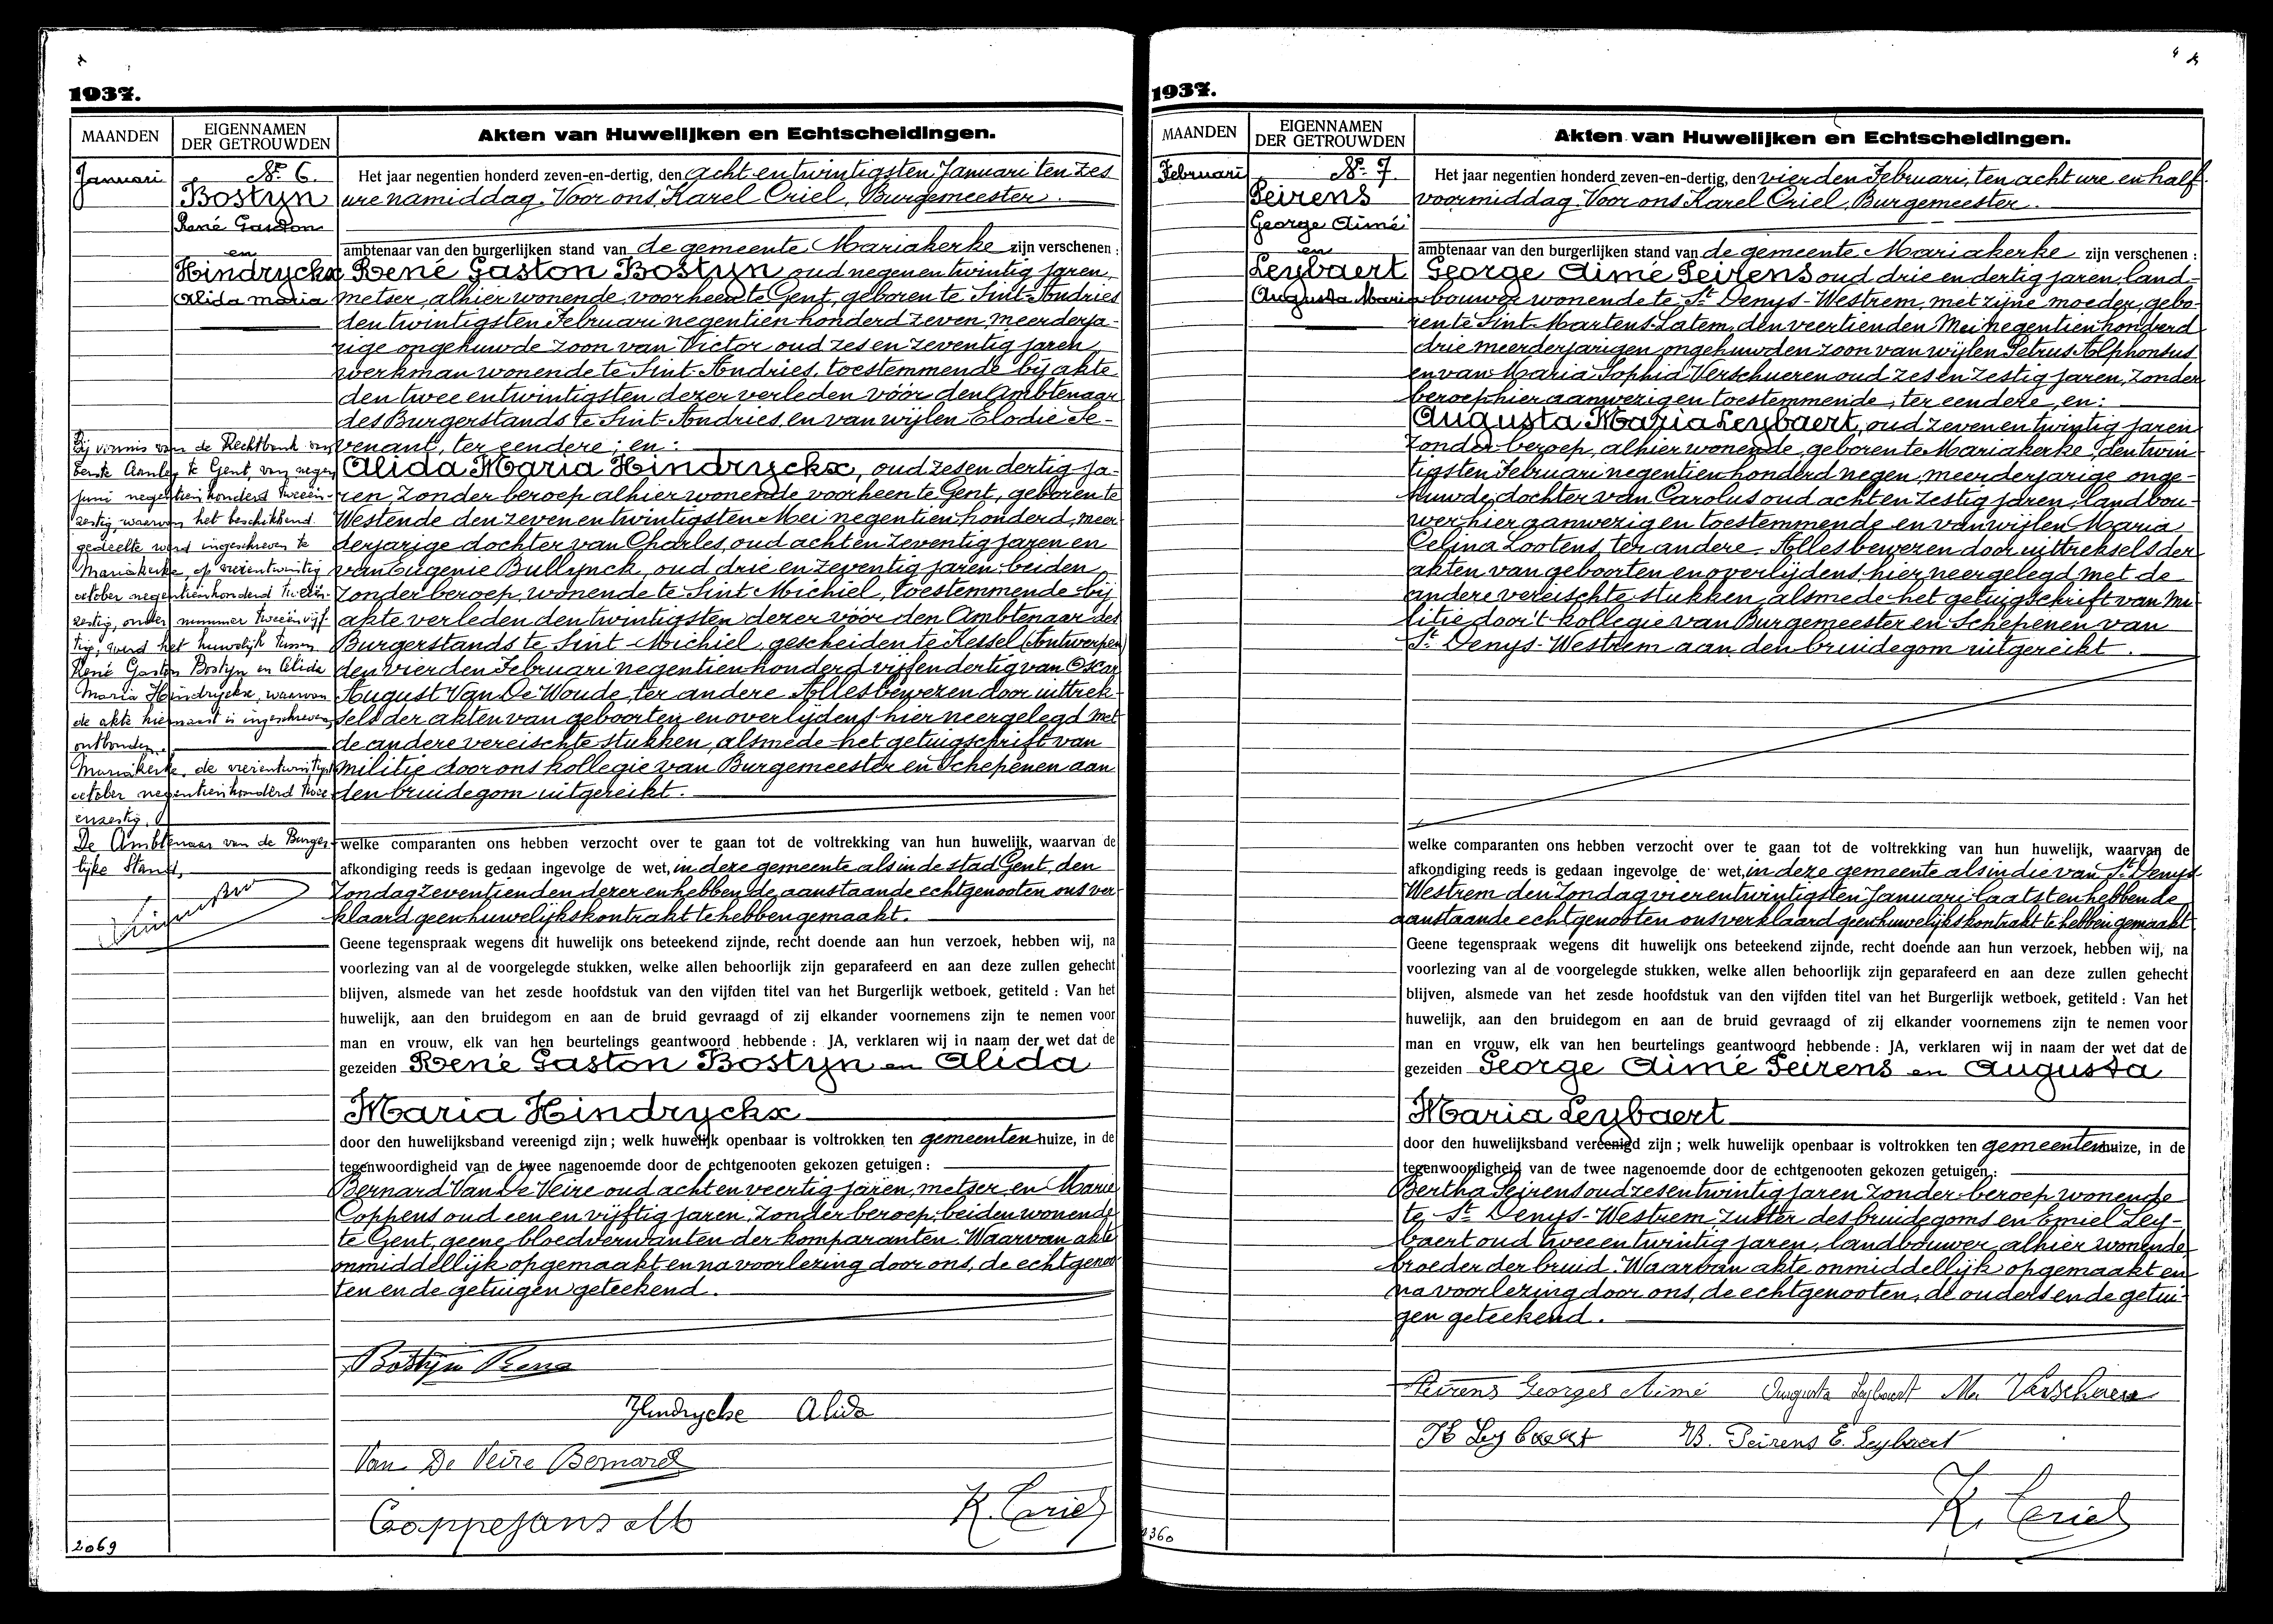 1937.
MAANDEN
EIGENNAMEN
DER GETROUWDEN
Akten van Huwelijken en Echtscheidingen.
Januari
Nr. 6.
Bostyn
René Gaston
en
Hindryckx
Alida Maria
Het jaar negentien honderd zeven-en-dertig, den acht en twintigsten Januari ten zes
ure namiddag. Voor ons Karel Criel, Burgemeester
ambtenaar van den burgerlijken stand van de gemeente Mariakerke zijn verschenen :
René Gaston Bostyn oud negen en twintig jaren,
metser, alhier wonende, voorheen te Gent, geboren te Sint-Andries
den twintigsten Februari negentien honderd zeven, meerderja-
rige ongehuwde zoon van Victor oud zes en zeventig jaren
werkman wonende te Sint-Andries, toestemmende bij akte
den twee en twintigsten dezer verleden vóór den Ambtenaar
des Burgerstands te Sint-Andries, en van wijlen Elodie Te-
venant, ter eendere ; en :
Alida Maria Hindryckx, oud zes en dertig ja-
ren zonder beroep alhier wonende voorheen te Gent, geboren te
Westende den zeven en twintigsten Mei negentien honderd, meer-
derjarige dochter van Charles, oud acht en zeventig jaren en
van Eugenie Bullynck, oud drie en zeventig jaren beiden
zonder beroep, wonende te Sint Michiel, toestemmende bij
akte verleden den twintigsten dezer vóór den Ambtenaar des
Burgerstands te Sint-Michiel, gescheiden te Kessel (Antwerpen)
den vierden Februari negentien honderd vijf en dertig van Oscar
August Van De Woude, ter andere. Alles bewezen door uittrek-
sels der akten van geboorten en overlijdens hier neergelegd met
de andere vereischte stukken, alsmede het getuigschrift van
militie door ons kollegie van Burgemeester en Schepenen aan
den bruidegom uitgereikt.
Bij vonnis van de Rechtbank van
Eerste Aanleg te Gent, van negen
juni negentienhonderd tweeën-
zestig, waarvan het beschikkend
gedeelte werd ingeschreven te
Mariakerke, op vierentwintig
october negentienhonderd tweeën-
zestig, onder nummer tweeënvijf-
tig, werd het huwelijk tussen
René Gaston Bostyn en Alida
Maria Hindryckx, waarvan
de akte hiernaast is ingeschreven,
ontbonden.
Mariakerke, de vierentwintigste
october negentienhonderd twee
enzestig.
De Ambtenaar van de Burger-
lijke Stand,
welke comparanten ons hebben verzocht over te gaan tot de voltrekking van hun huwelijk, waarvan de
afkondiging reeds is gedaan ingevolge de wet, in deze gemeente als in de stad Gent, den
Zondag zeventienden dezer en hebben de aanstaande echtgenooten ons ver-
klaard geen huwelijkskontrakt te hebben gemaakt.
Geene tegenspraak wegens dit huwelijk ons beteekend zijnde, recht doende aan hun verzoek, hebben wij, na
voorlezing van al de voorgelegde stukken, welke allen behoorlijk zijn geparafeerd en aan deze zullen gehecht
blijven, alsmede van het zesde hoofdstuk van den vijfden titel van het Burgerlijk wetboek, getiteld : Van het
huwelijk, aan den bruidegom en aan de bruid gevraagd of zij elkander voornemens zijn te nemen voor
man en vrouw, elk van hen beurtelings geantwoord hebbende : JA, verklaren wij in naam der wet dat de
gezeiden René Gaston Bostyn en Alida
Maria Hindryckx
door den huwelijksband vereenigd zijn ; welk huwelijk openbaar is voltrokken ten gemeentenhuize, in de
tegenwoordigheid van de twee nagenoemde door de echtgenooten gekozen getuigen :
Bernard Van De Veire oud acht en veertig jaren, metser, en Marie
Coppens oud een en vijftig jaren, zonder beroep, beiden wonende
te Gent, geene bloedverwanten der komparanten. Waarvan akte
onmiddellijk opgemaakt en na voorlezing door ons, de echtgenoo-
ten en de getuigen geteekend.
Bostijn Rena
Hindryckx Alida
Van De Veire Bernard
K. Criel
2069
1937.
MAANDEN
EIGENNAMEN
DER GETROUWDEN
Akten van Huwelijken en Echtscheidingen.
Februari
Nr. 7.
Peirens
George Aimé
en
Leybaert
Augusta Maria
Het jaar negentien honderd zeven-en-dertig, den vierden Februari, ten acht ure en half
voormiddag. Voor ons Karel Criel, Burgemeester
ambtenaar van den burgerlijken stand van de gemeente Mariakerke zijn verschenen :
George Aimé Peirens oud drie en dertig jaren, land-
bouwer wonende te St Denys-Westrem, met zijne moeder, gebo-
ren te Sint-Martens-Latem, den veertienden Mei negentien honderd
drie meerderjarigen ongehuwden zoon van wijlen Petrus Alphonsus
en van Maria Sophia Verschueren oud zes en zestig jaren, zonder
beroep hier aanwezig en toestemmende, ter eendere, en :
Augusta Maria Leybaert, oud zeven en twintig jaren
zonder beroep, alhier wonende, geboren te Mariakerke, den twin-
tigsten Februari negentien honderd negen, meerderjarige onge-
huwde dochter van Carolus oud acht en zestig jaren, landbou-
wer hier aanwezig en toestemmende en van wijlen Maria
Celina Lootens, ter andere. Alles bewezen door uittreksels der
akten van geboorten en overlijdens, hier neergelegd met de
andere vereischte stukken, alsmede het getuigschrift van mi-
litie door 't kollegie van Burgemeester en Schepenen van
St Denys-Westrem aan den bruidegom uitgereikt.
welke comparanten ons hebben verzocht over te gaan tot de voltrekking van hun huwelijk, waarvan de
afkondiging reeds is gedaan ingevolge de wet, in deze gemeente als in die van St Denys
Westrem den Zondag vier en twintigsten Januari laatst en hebben de
aanstaande echtgenooten ons verklaard geen huwelijkskontrakt te hebben gemaakt
Geene tegenspraak wegens dit huwelijk ons beteekend zijnde, recht doende aan hun verzoek, hebben wij, na
voorlezing van al de voorgelegde stukken, welke allen behoorlijk zijn geparafeerd en aan deze zullen gehecht
blijven, alsmede van het zesde hoofdstuk van den vijfden titel van het Burgerlijk wetboek, getiteld : Van het
huwelijk, aan den bruidegom en aan de bruid gevraagd of zij elkander voornemens zijn te nemen voor
man en vrouw, elk van hen beurtelings geantwoord hebbende : JA, verklaren wij in naam der wet dat de
gezeiden George Aimé Peirens en Augusta
Maria Leybaert
door den huwelijksband vereenigd zijn ; welk huwelijk openbaar is voltrokken ten gemeentenhuize, in de
tegenwoordigheid van de twee nagenoemde door de echtgenooten gekozen getuigen :
Bertha Peirens oud zes en twintig jaren zonder beroep wonende
te St Denys-Westrem zuster des bruidegoms en Emiel Ley-
baert oud twee en twintig jaren, landbouwer, alhier wonende
broeder der bruid. Waarvan akte onmiddellijk opgemaakt en
na voorlezing door ons, de echtgenooten, de ouders en de getui-
gen geteekend.
Peirens Georges Aimé Augusta Leybaert
Leybaert B. Peirens E. Leybaert
K. Criel